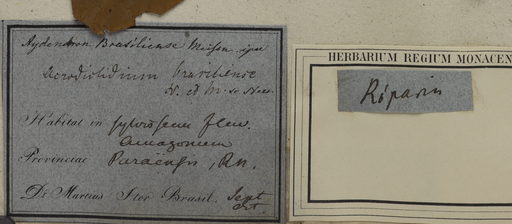 Aydendron Brasiliense Meissn.
Acrodiclidium brasiliense
N. ab E. Nees.
Habitat in sylvis secus fluv.
Amazonum
Provinciae Paraënsis,
Dr. Martius Iter Brasil. Sept
Oct.
HERBARIUM REGIUM MONACEN
Riparin